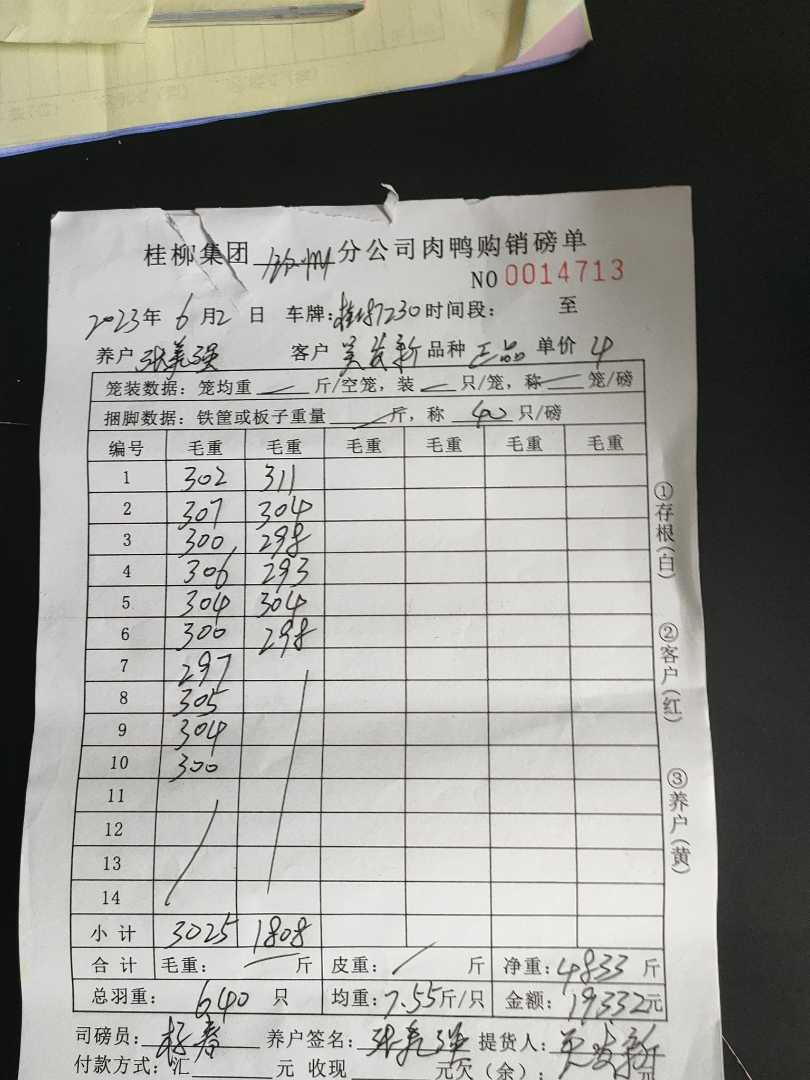 桂柳集团 徐州 分公司肉鸭购销磅单
NO 0014713
2023年 6月2日 车牌: 时间段: 至
养户 张美强 客户 吴发新 品种 正品 单价 4
笼装数据: 笼均重 斤/空笼, 装 只/笼, 称 笼/磅
捆脚数据: 铁筐或板子重量 斤, 称 40 只/磅
编号 毛重 毛重 毛重 毛重 毛重 毛重
1 302 311
2 307 304
3 300 298
4 306 293
5 304 304
6 300 298
7 297
8 305
9 304
10 300
11
12
13
14
小计 3025 1808
合计 毛重: 斤 皮重: 斤 净重: 4833 斤
总羽重: 640 只 均重: 7.55斤/只 金额: 19332元
司磅员: 杨春 养户签名: 张美强 提货人: 吴发新
付款方式: 汇 元 收现 元欠(余): 元
①存根(白)
②客户(红)
③养户(黄)